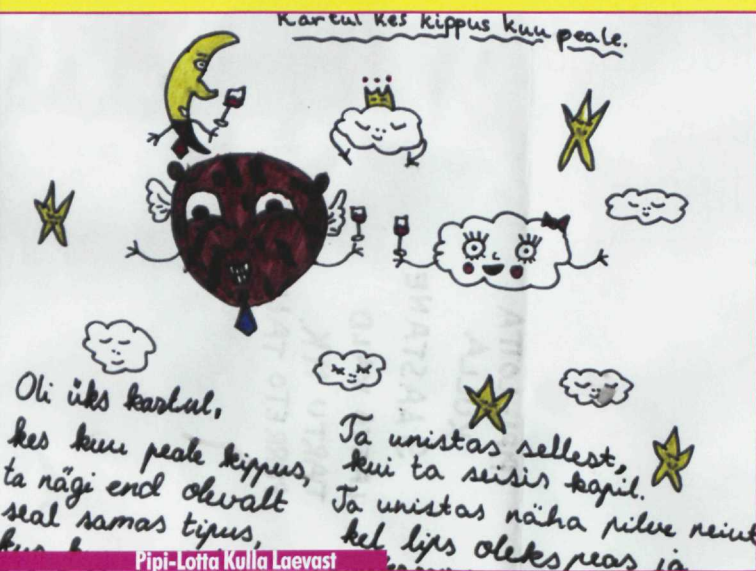 Kartul kes kippus kuu peale.
Oli üks kartul,
kes kuu peale kippus,
ta nägi end olevalt
seal samas tipus,
Ta unistas sellest,
kui ta seisis kapil.
Ta unistas näha pilve neiut
kel lips oleks peas ja
Pipi-Lotta Kulla Laevast